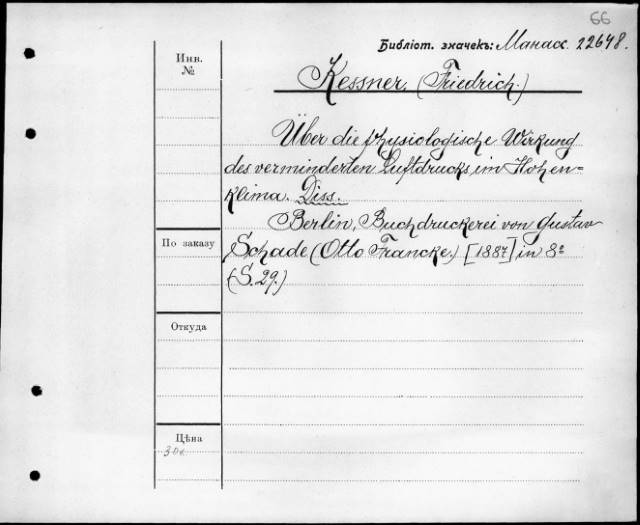 66
Библіот. значекъ: Манасс. 22648.
Инв.
№
Kessner, (Friedrich.)
Über die physiologische Wirkung
des verminderten Luftdrucks im Hohen=
klima. Diss.
Berlin, Buchdruckerei von Gustav
По заказу
Schade (Otto Francke.) [1887] in 8º
(S. 29.)
Откуда
Цѣна
30к